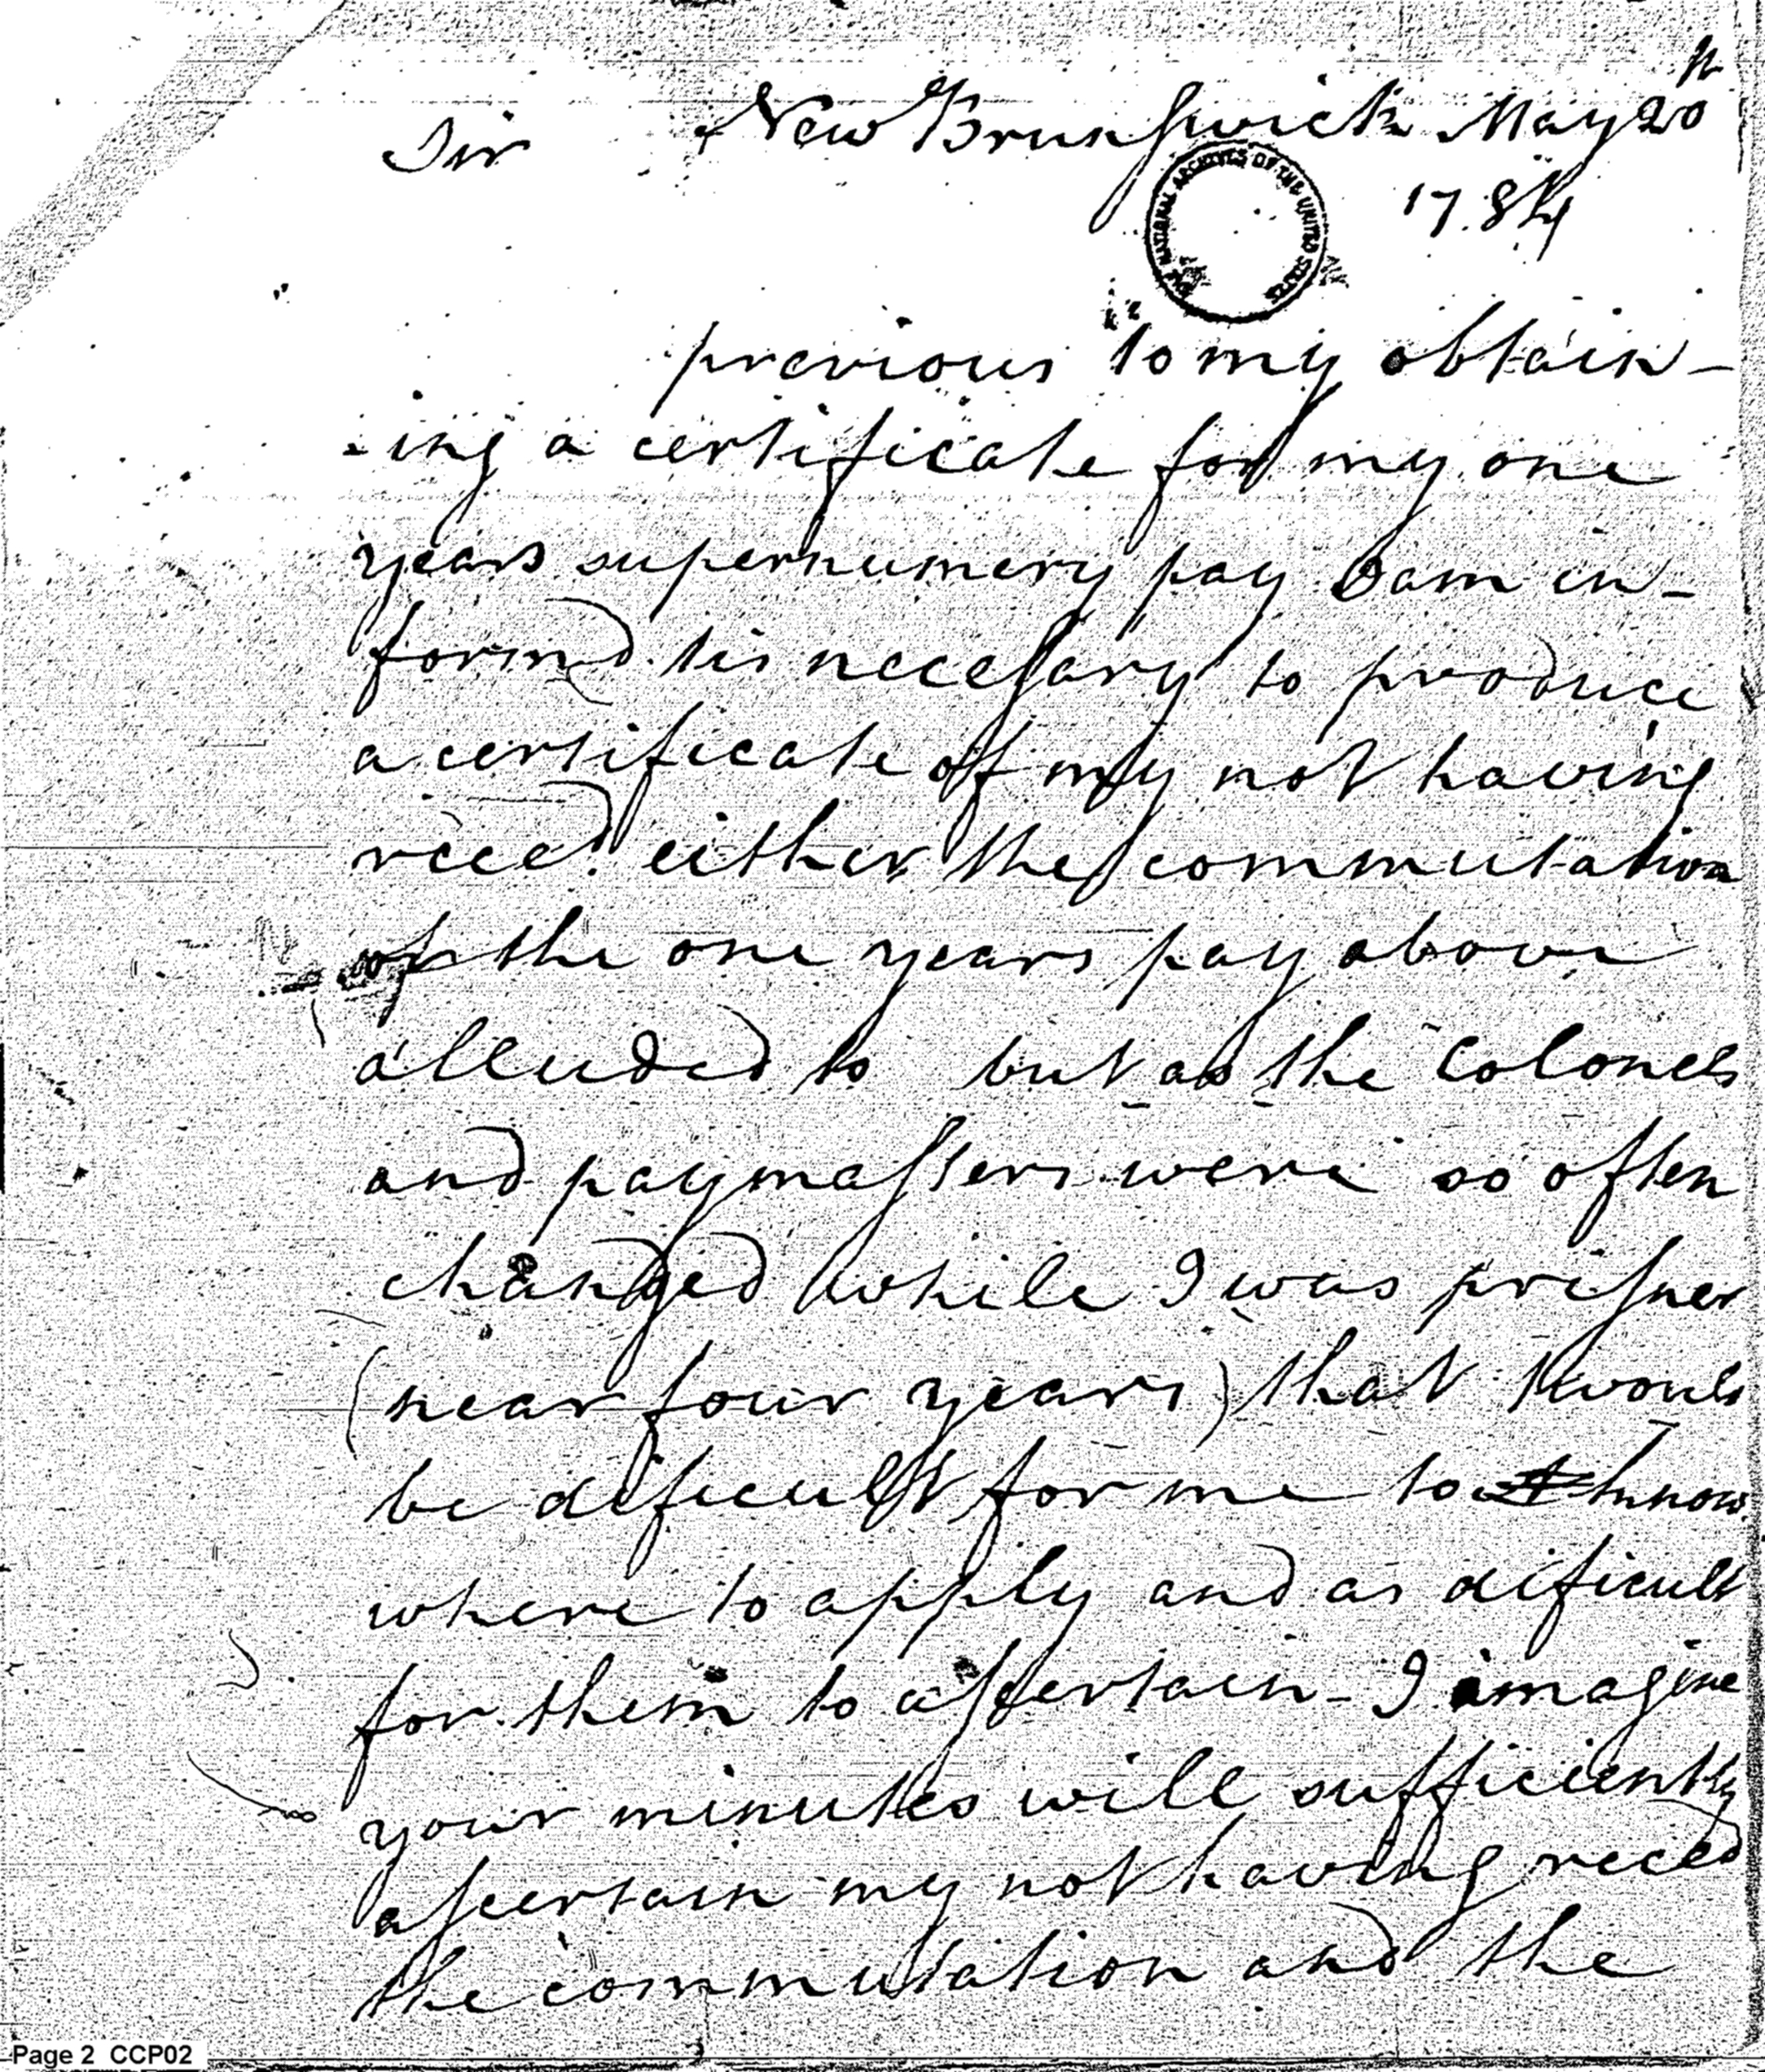 Sir New Brunswick May 20th
1784
THE NATIONAL ARCHIVES OF THE UNITED STATES
previous to my obtain-
-ing a certificate for my one
years supernumery pay I am in-
formd tis necessary to produce
a certificate of my not having
reced. either the commutation
or the one years pay above
alluded to but as the Colonels
and paymasters were so often
changed while I was prisner
(near four years) that twould
be dificult for me to know
where to apply and as dificult
for them to assertain - I imagine
your minutes will sufficiently
ascertain my not having reced
the commutation and the
Page 2 CCP02